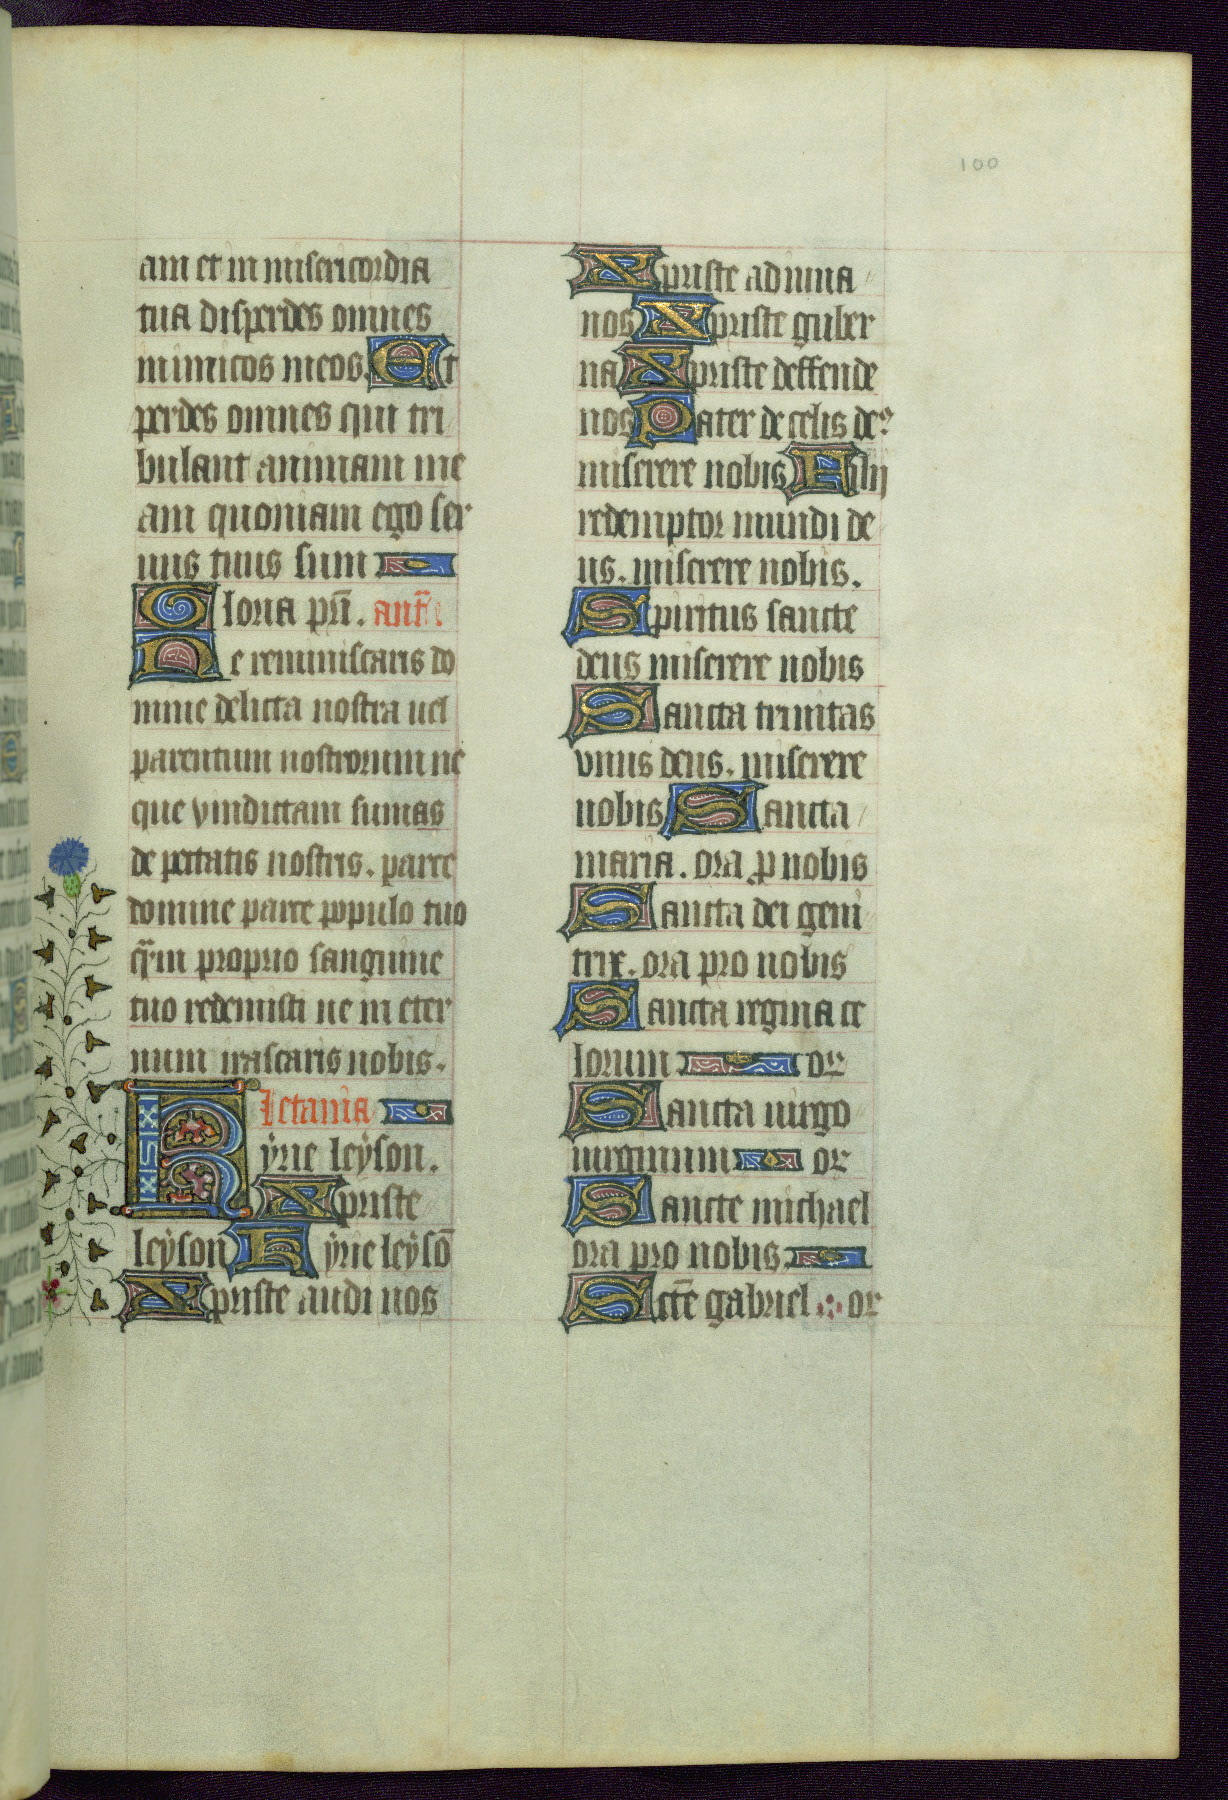 100
am et in misericordia
tua disperdes omnes
inimicos meos. Et
perdes omnes qui tri
bulant animam me
am quoniam ego ser
uus tuus sum
Gloria pr̄i. ant̄
Ne reminiscaris do
mine delicta nostra uel
parentum nostrorum ne
que vindictam sumas
de peccatis nostris. parce
domine parce populo tuo
quē in proprio sanguine
tuo redemisti ne in eter
num irascaris nobis.
letania
Kyrie leyson.
Xpriste
leyson Kyrie leysō
Xpriste audi nos
Xpriste adiuua
nos Xpriste guber
na Xpriste deffende
nos Pater de celis deꝰ
miserere nobis Filij
redemptor mundi de
us. miserere nobis.
Spiritus sancte
deus miserere nobis
Sancta trinitas
vnus deus. miserere
nobis Sancta
maria. ora ꝓ nobis
Sancta dei geni
trix. ora pro nobis
Sancta regina ce
lorum or
Sancta uirgo
uirginum or
Sancte michael
ora pro nobis.
Sctē gabriel or